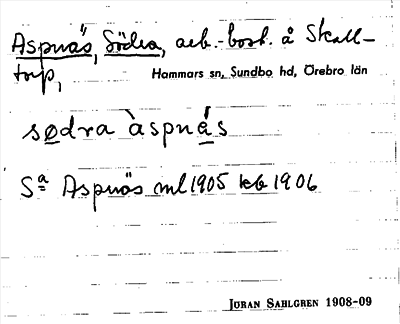 Aspnäs, Södra, arb.-bost. å Skall-
torp,
Hammars sn, Sundbo hd, Örebro län
sødra àspnǻs
Sa Aspnäs ml 1905 kb 1906
JÖRAN SAHLGREN 1908-09